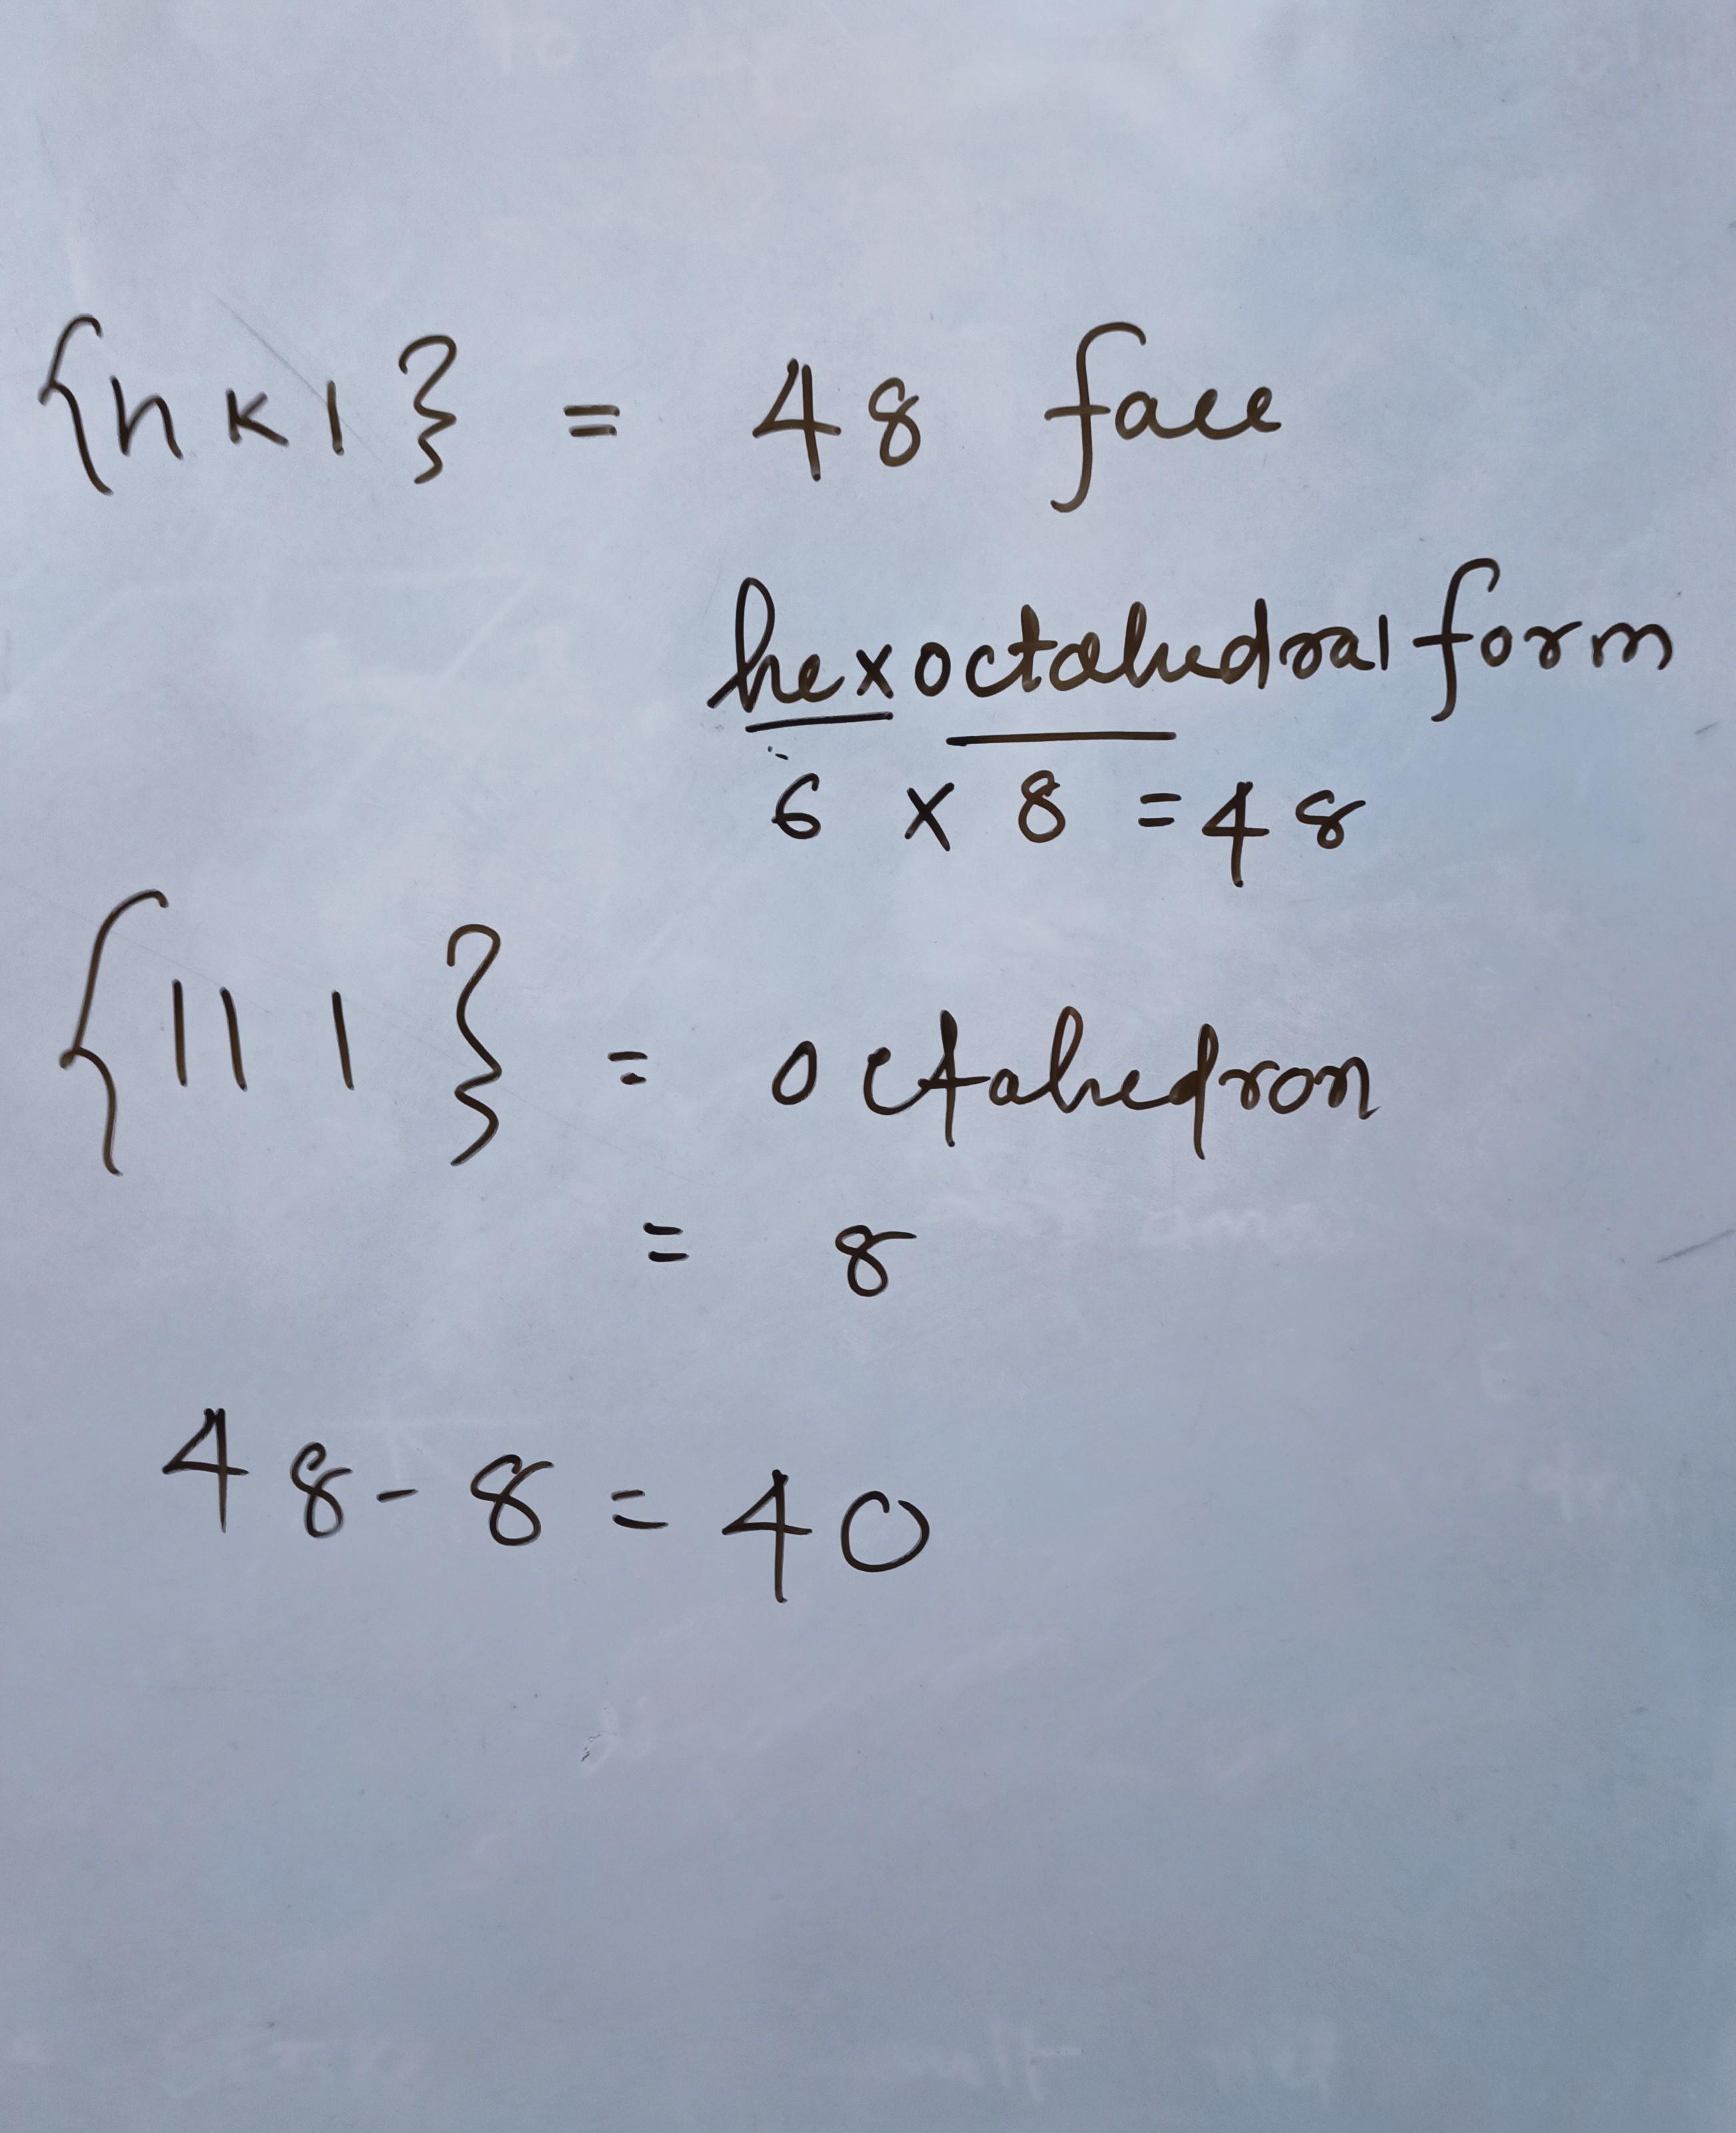 {hkl} = 48 face
hexoctahedral form
6 x 8 = 48
{111} = octahedron
= 8
48 - 8 = 40